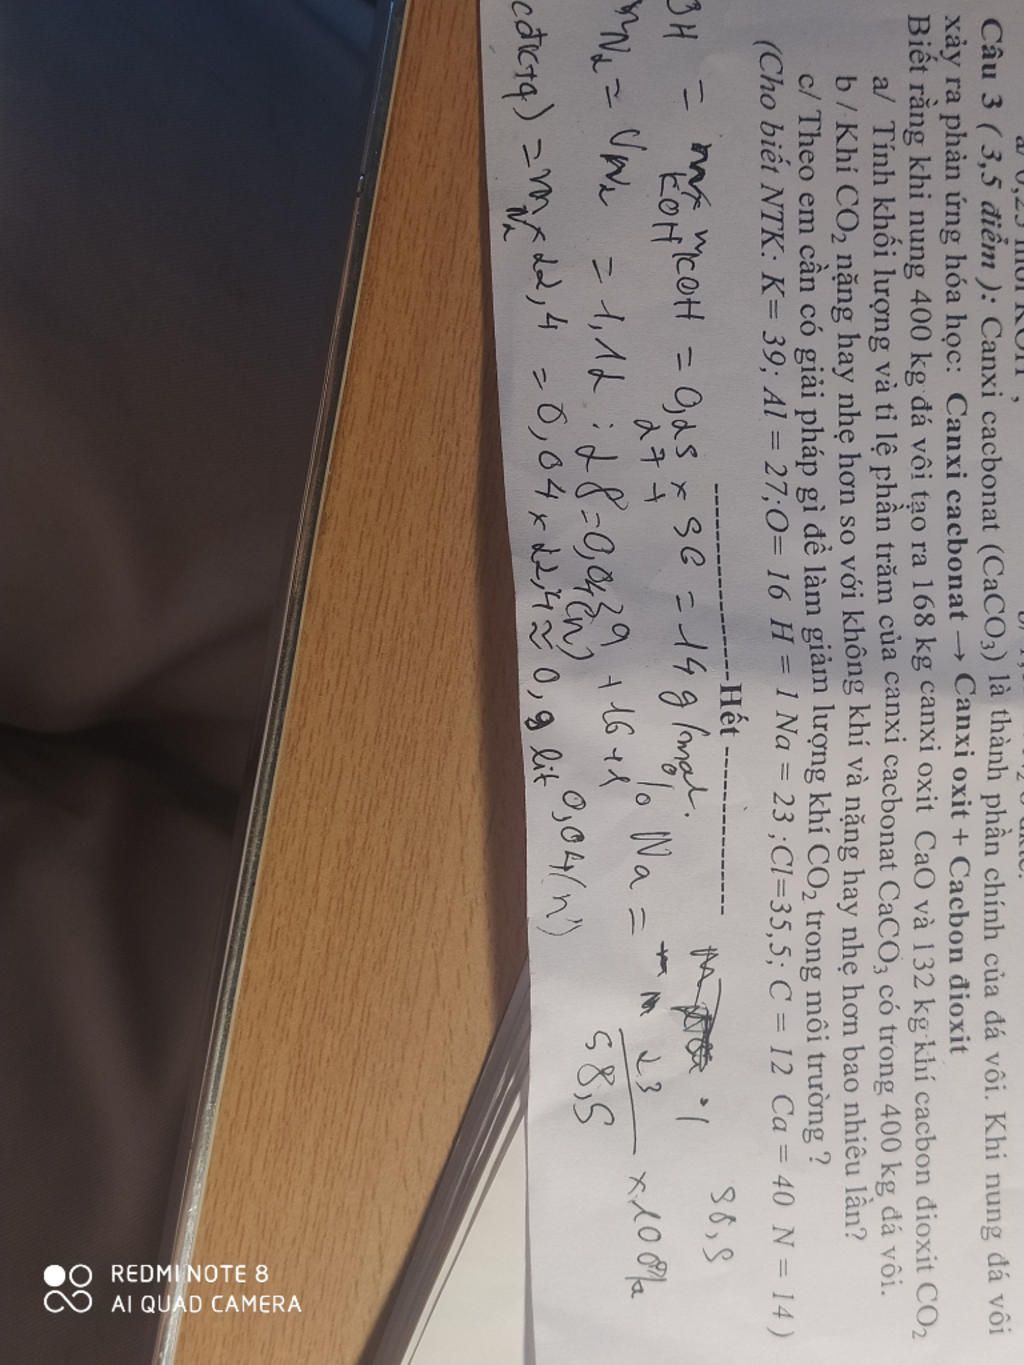 a/ 0,25 mol KOH ;
Câu 3 ( 3,5 điểm ): Canxi cacbonat (CaCO₃) là thành phần chính của đá vôi. Khi nung đá vôi
xảy ra phản ứng hóa học: Canxi cacbonat → Canxi oxit + Cacbon đioxit
Biết rằng khi nung 400 kg đá vôi tạo ra 168 kg canxi oxit CaO và 132 kg khí cacbon đioxit CO₂
a/ Tính khối lượng và tỉ lệ phần trăm của canxi cacbonat CaCO₃ có trong 400 kg đá vôi.
b / Khí CO₂ nặng hay nhẹ hơn so với không khí và nặng hay nhẹ hơn bao nhiêu lần?
c/ Theo em cần có giải pháp gì để làm giảm lượng khí CO₂ trong môi trường ?
(Cho biết NTK: K= 39; Al = 27;O= 16 H = 1 Na = 23 ;Cl=35,5; C = 12 Ca = 40 N = 14 )
Hết
58,5
= KOH = 0,25 × 56 = 14 g/mol.
27 + 39 + 16 + 1
% Na = 23 / 58,5 × 100%
mN₂ = = 1,12 : 28 = 0,04 (n)
0,04 (n)
(đktc) = × 22,4 = 0,04 × 22,4 ≈ 0,9 lit
REDMI NOTE 8
AI QUAD CAMERA